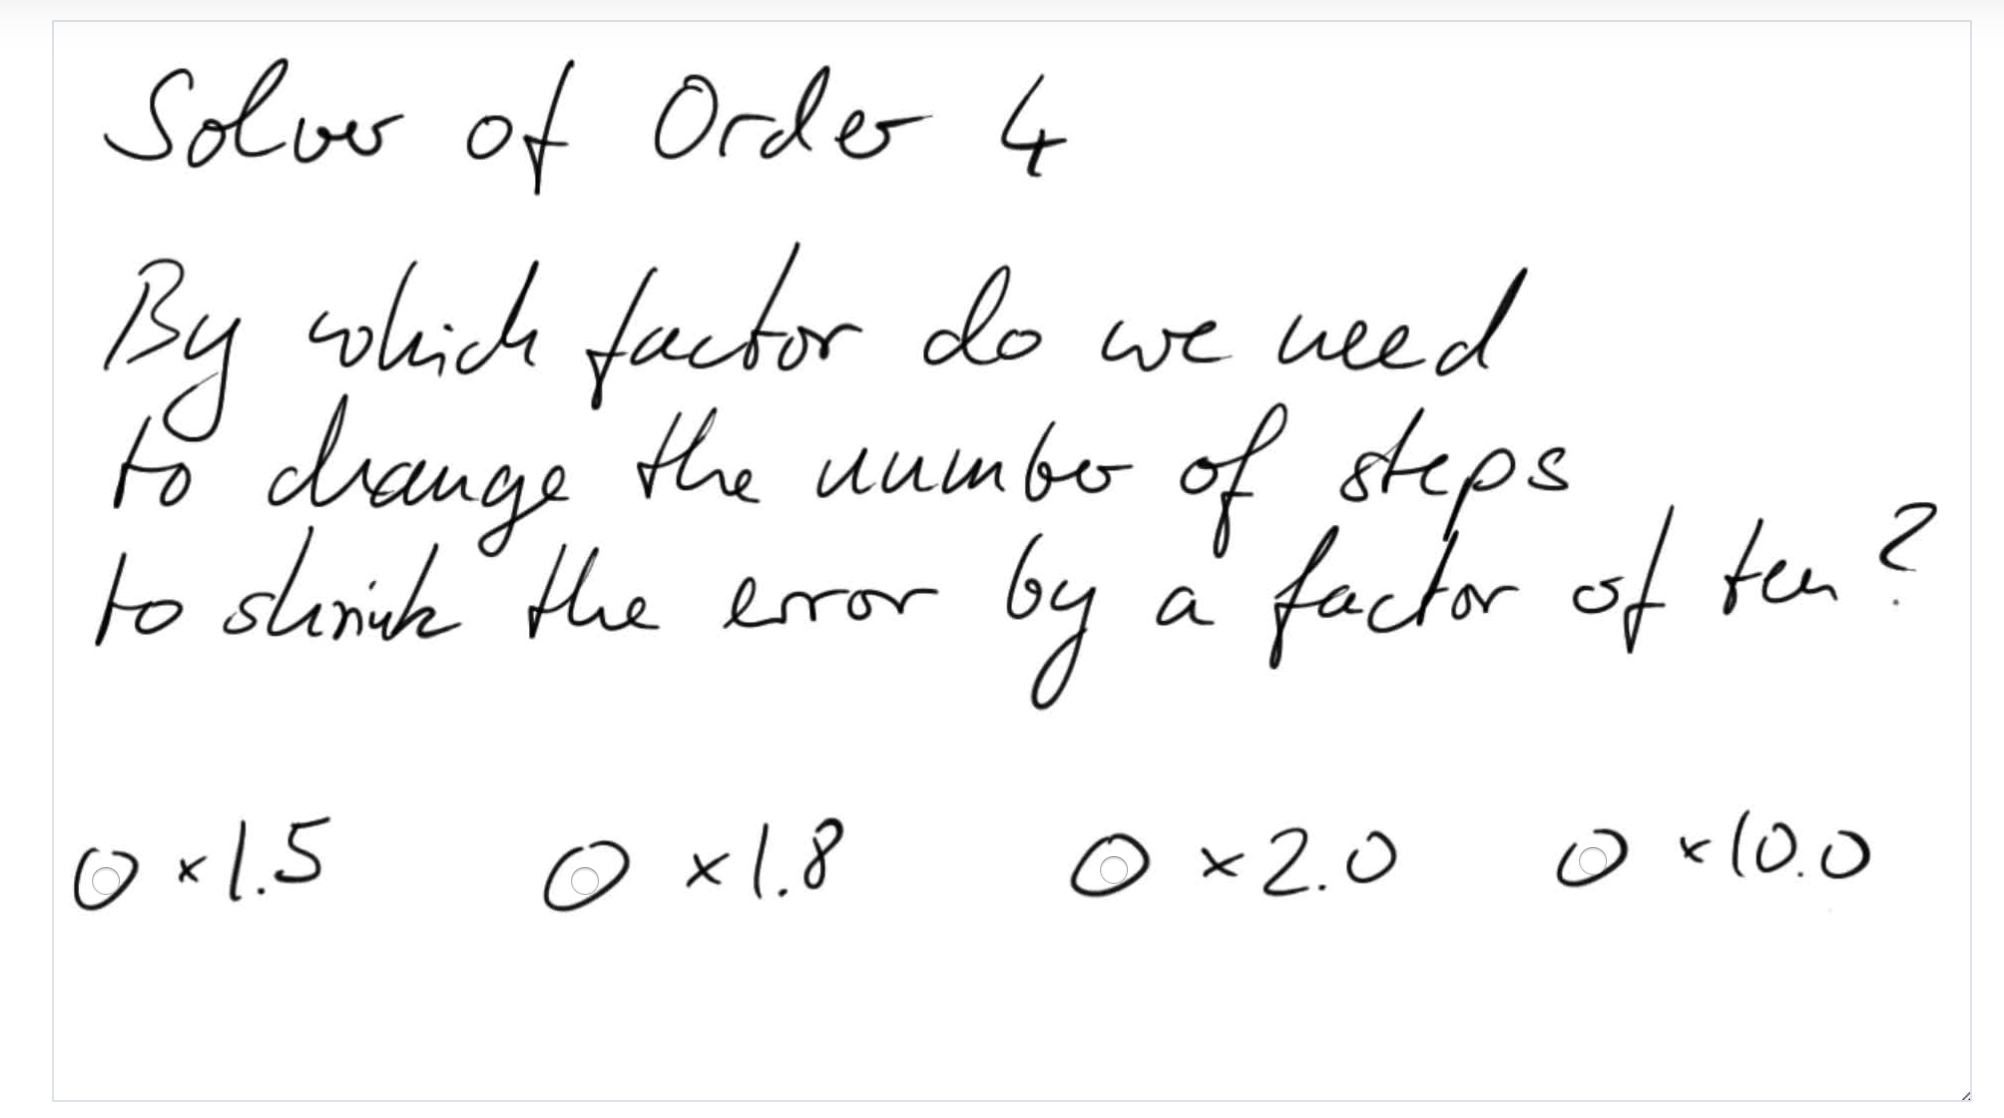 Solver of Order 4
By which factor do we need
to change the number of steps
to shrink the error by a factor of ten?
×1.5 ×1.8 ×2.0 ×10.0